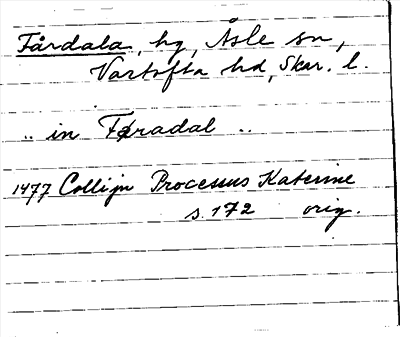 Fårdala, hg, Åsle sn,
Vartofta hd, Skar. l.
.. in Føradal ..
1477 Collijn Processus Katerine
s. 172 orig.